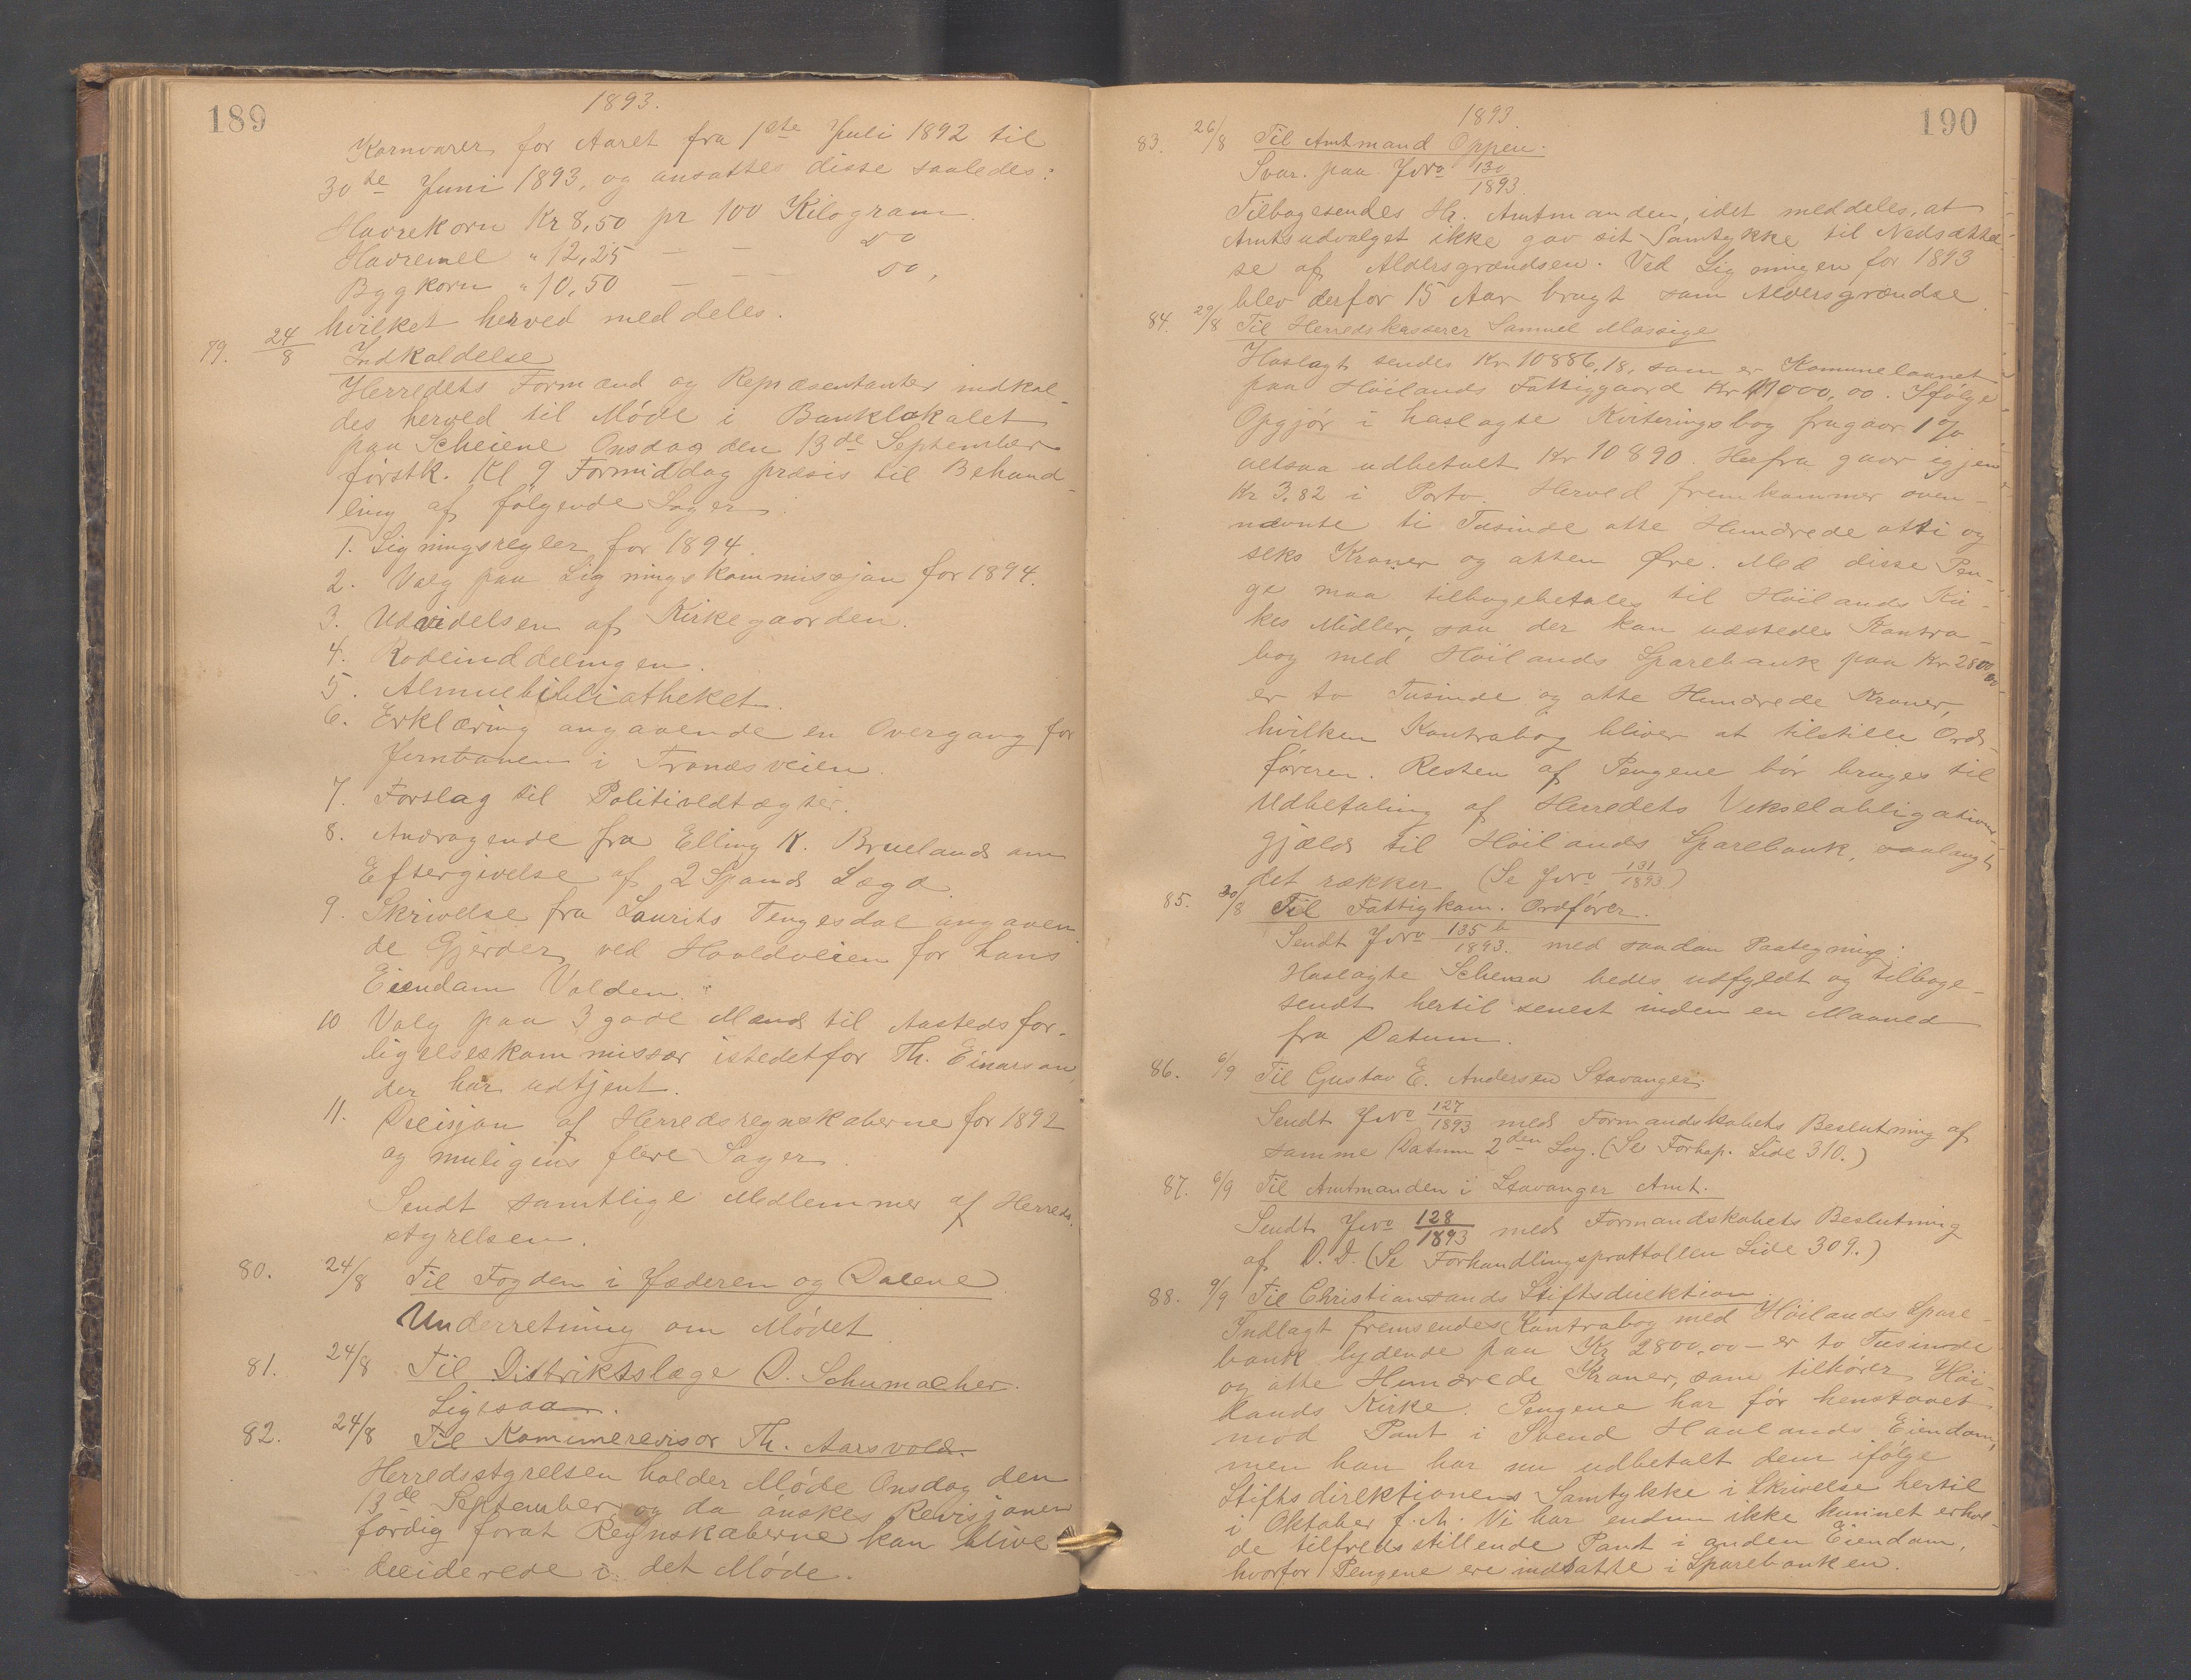 189
1893.
Kornvarer for Aaret fra 1ste Juli 1892 til
30te Juni 1893, og ansattes disse saaledes:
Havrekorn Kr 8,50 pr 100 Kilogram.
Havremel " 12,25 — — do
Bygkorn " 10,50 — — do,
hvilket herved meddeles.
79. 24/8 Indkaldelse
Herredets Formænd og Repræsentanter indkal-
des herved til Møde i Banklokalet
paa Scheiene Onsdag den 13de September
førstk. Kl 9 Formiddag præsis til Behand-
ling af følgende Sager:
1. Ligningsregler for 1894.
2. Valg paa Ligningskommissjon for 1894.
3. Udvidelsen af Kirkegaarden.
4. Rodeinddelingen.
5. Almuebibliotheket.
6. Erklæring angaaende en Overgang for
Jernbanen i Tronæsveien.
7. Forslag til Politivedtægter.
8. Andragende fra Elling K. Bruelands om
Eftergivelse af 2 Spands Lægd.
9. Skrivelse fra Laurits Tengesdal angaaen-
de Gjerder ved Hovldveien for hans
Eiendom Volden.
10 Valg paa 3 gode Mænd til Aastedsfor-
ligelseskommissær istedetfor Th. Einarson,
der har udtjent.
11. Decisjon af Herredsregnskaberne for 1892
og muligens flere Sager.
Sendt samtlige Medlemmer af Herreds-
styrelsen.
80. 24/8 Til Fogden i Jæderen og Dalene
Underretning om Mødet
81. 24/8 Til Distriktslæge D. Schumacher.
Ligesaa.
82. 24/8 Til Kommunerevisor Th. Aarsvold.
Herredsstyrelsen holder Møde Onsdag den
13de September og da ønskes Revisjonen
færdig forat Regnskaberne kan blive
deciderede i det Møde.
190
1893.
83. 26/8 Til Amtmand Oppen.
Svar. paa JNo 130/1893
Tilbagesendes Hr. Amtmanden, idet meddeles, at
Amtsudvalget ikke gav sit Samtykke til Nedsættel-
se af Aldersgrændsen. Ved Ligningen for 1893
blev derfor 15 Aar brugt som Aldersgrændse
84. 29/8 Til Herredskasserer Samuel Mossige
Hoslagt sendes Kr 10886,18, som er Kommunelaanet
paa Höilands Fattiggaard Kr 11000,00. Ifølge
Opgjør i hoslagte Kviteringsbog fragaar 1 %
altsaa udbetalt Kr 10890. Herfra gaar igjen
Kr 3,82 i Porto. Herved fremkommer oven-
nævnte ti Tusinde otte Hundrede otti og
seks Kroner og atten Øre. Med disse Pen-
ge maa tilbagebetales til Höilands Kir-
kes Midler, saa der kan udstedes Kontra-
bog med Höilands Sparebank paa Kr 2800,00
er to Tusinde og otte Hundrede Kroner,
hvilken Kontrabog bliver at tilstille Ord-
føreren. Resten af Pengene bør bruges til
Udbetaling af Herredets Vekselobligations-
gjæld til Höilands Sparebank, saalangt
det rækker (Se JNo 131/1893)
85. 30/8 Til Fattigkom. Ordfører.
Sendt JNo 135 b/1893. med saadan Paategning:
Hoslagte Schema bedes udfyldt og tilbage-
sendt hertil senest inden en Maaned
fra Datum.
86. 6/9 Til Gustav E. Andersen Stavanger.
Sendt JNo 127/1893 med Formandskabets Beslutning af
samme Datum 2den Sag. (Se Forhap. Side 310.)
87. 6/9 Til Amtmanden i Stavanger Amt.
Sendt JNo 128/1893 med Formandskabets Beslutning
af D. D. (Se Forhandlingsprottollen Side 309.)
88. 9/9 Til Christiansands Stiftsdirektion
Indlagt fremsendes Kontrabog med Höilands Spare-
bank lydende paa Kr 2800,00 — er to Tusinde
og otte Hundrede Kroner, som tilhører Höi-
lands Kirke. Pengene har før henstaaet
mod Pant i Svend Haalands Eiendom,
men han har nu udbetalt dem ifølge
Stiftsdirektionens Samtykke i Skrivelse hertil
i Oktober f. A. Vi har endnu ikke kunnet erhol-
de tilfredsstillende Pant i anden Eiendom,
hvorfor Pengene ere indsatte i Sparebanken.